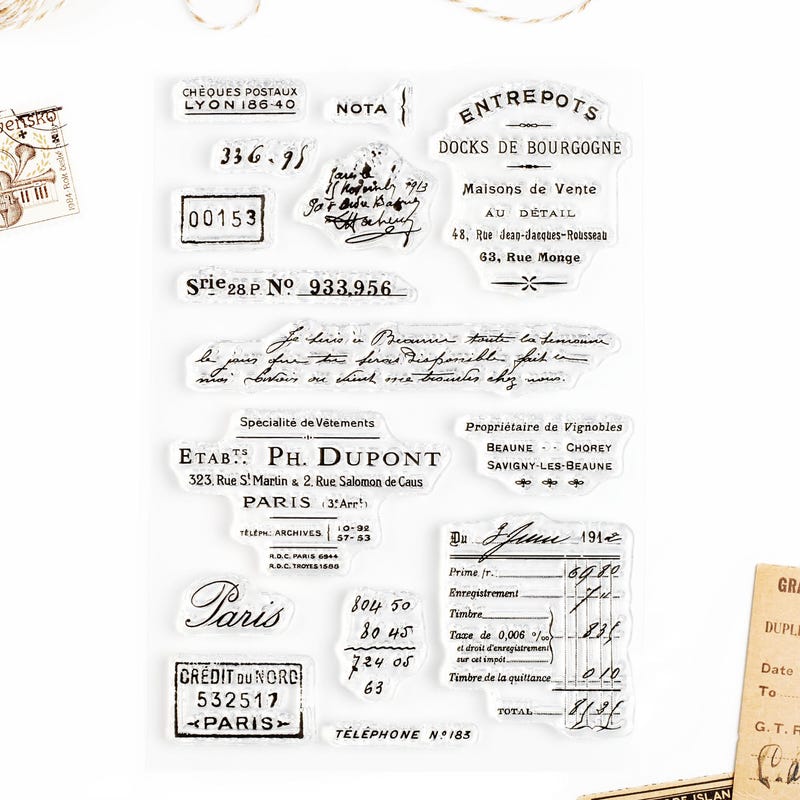 CHÈQUES POSTAUX
LYON 186-40
NOTA
ENTREPOTS
DOCKS DE BOURGOGNE
Maisons de Vente
AU DÉTAIL
48, Rue Jean-Jacques-Rousseau
63, Rue Monge
336.95
1913
00153
Srie 28 P. No 933,956
Je serais à Beaune toute la semaine
le jour que tu seras disponible fait
moi savoir ou vient me trouver chez nous.
Spécialité de Vêtements
ETABTS. PH. DUPONT
323, Rue St Martin & 2, Rue Salomon de Caus
PARIS (3e Arrt)
TÉLÉPH: ARCHIVES 10-92
57-53
R.D.C. PARIS 6944
R.D.C. TROYES 1588
Propriétaire de Vignobles
BEAUNE - - CHOREY
SAVIGNY-LES-BEAUNE
Du 3 Juin 1912
Prime fr. 69 80
Enregistrement 7 "
Timbre
Taxe de 0,006 °/oo 83
et droit d'enregistrement
sur cet impôt
Timbre de la quittance 0 10
TOTAL
Paris
804 50
80 45
724 05
63
CRÉDIT DU NORD
532517
PARIS
TÉLÉPHONE No 183
1984
DUPLE
Date
To
G.T.R
ISLAN